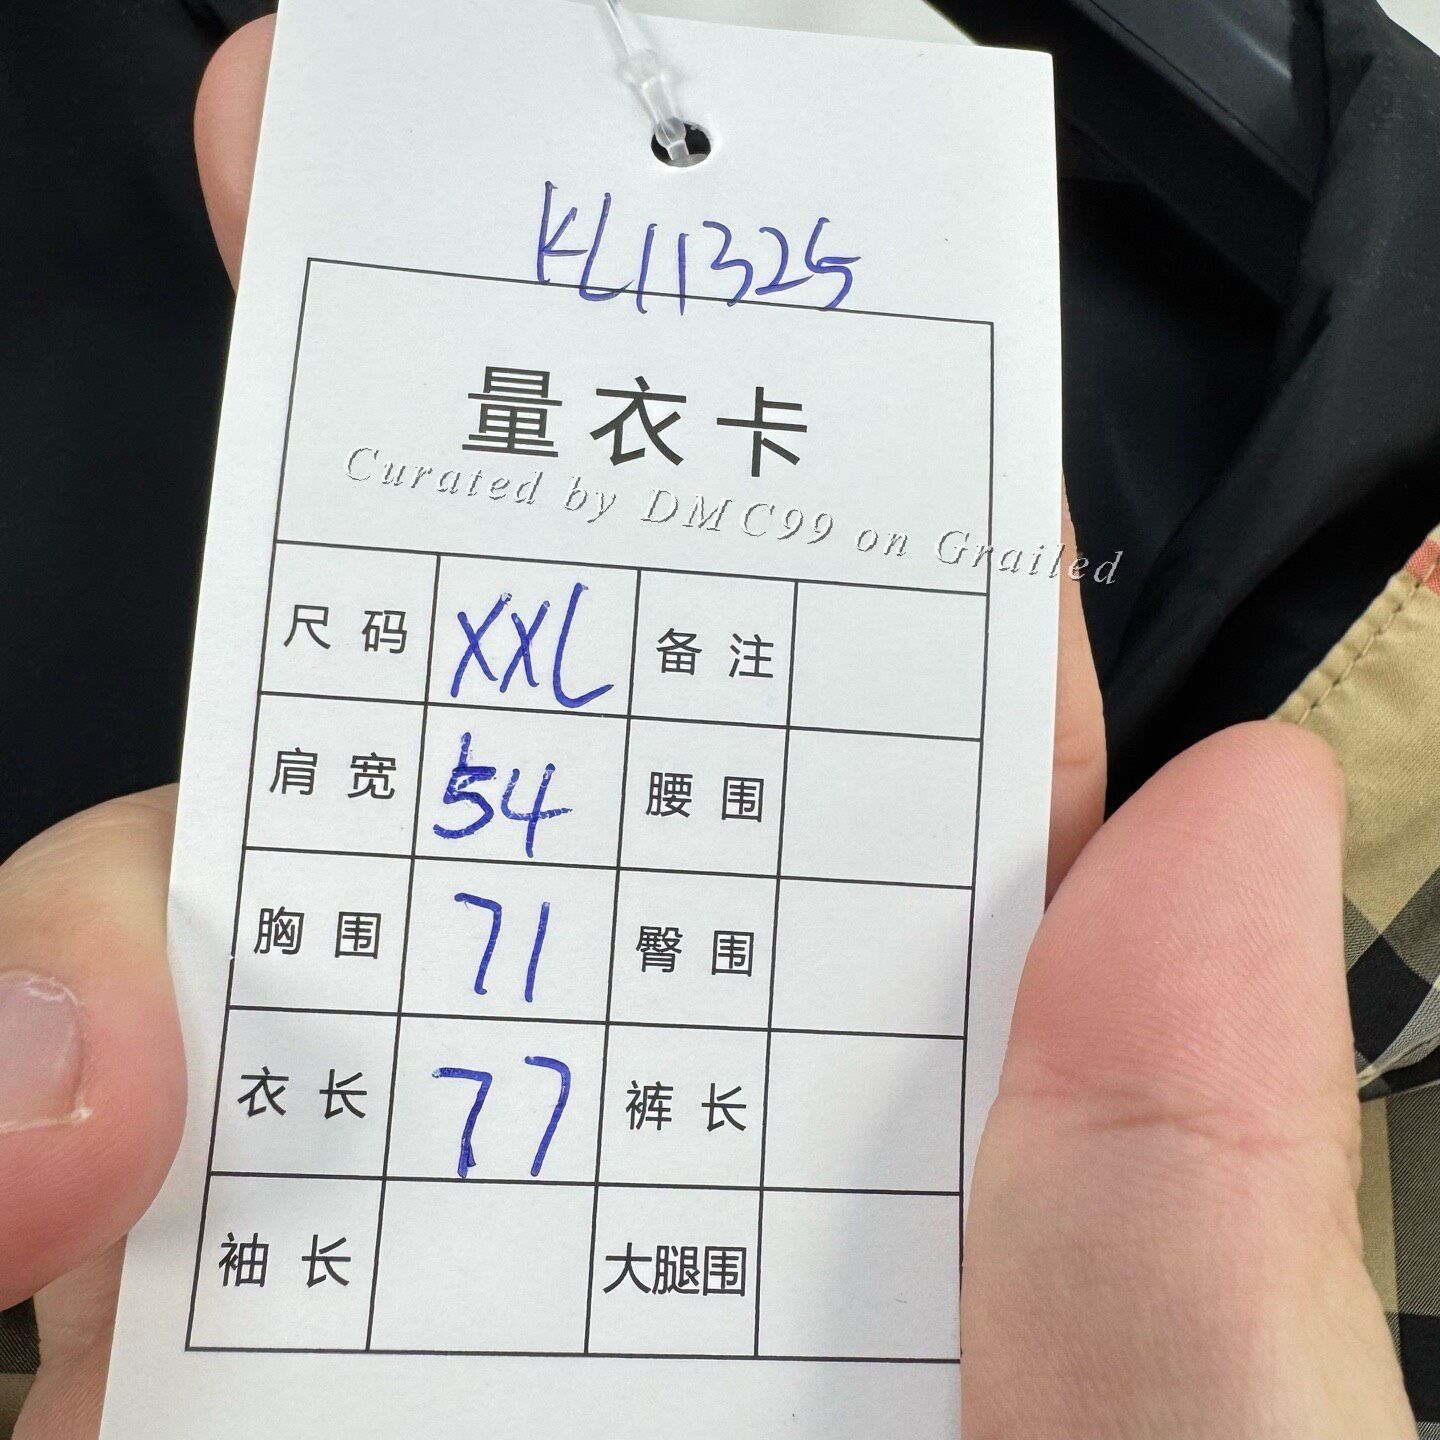 KL11325
量衣卡
Curated by DMC99 on Grailed
尺码 XXL 备注
肩宽 54 腰围
胸围 71 臀围
衣长 77 裤长
袖长 大腿围